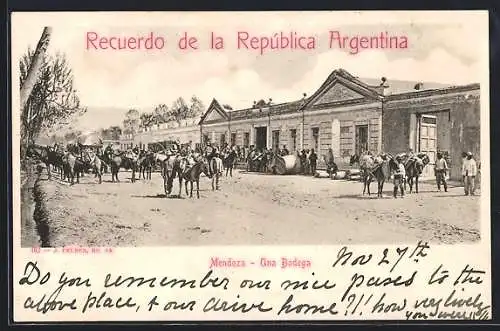 Recuerdo de la República Argentina
Mendoza - Una Bodega
Nov 27th
Do you remember our nice pases to the
above place, & our drive home?!! how very lively
you were